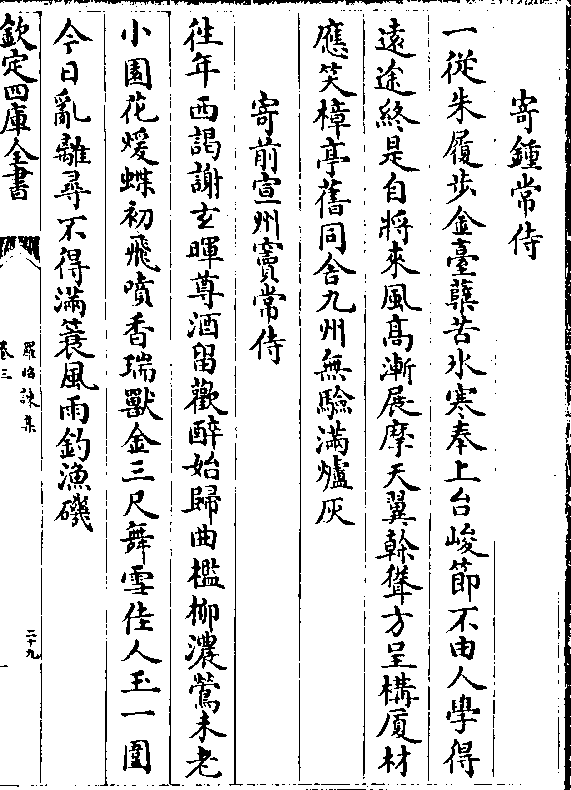 寄鍾常侍
一從朱履步金臺蘖苦氷寒奉上台峻節不由人學得
遠途終是自將來風高漸展摩天翼榦聳方呈構厦材
應笑樟亭舊同舍九州無驗滿爐灰
寄前宣州竇常侍
徃年西謁謝玄暉尊酒留歡醉始歸曲檻栁濃鶯未老
小園花煖蝶初飛噴香瑞獸金三尺舞雪佳人玉一圍
今日亂離尋不得滿蓑風雨釣漁磯
欽定四庫全書
羅昭諫集
卷三
二十九